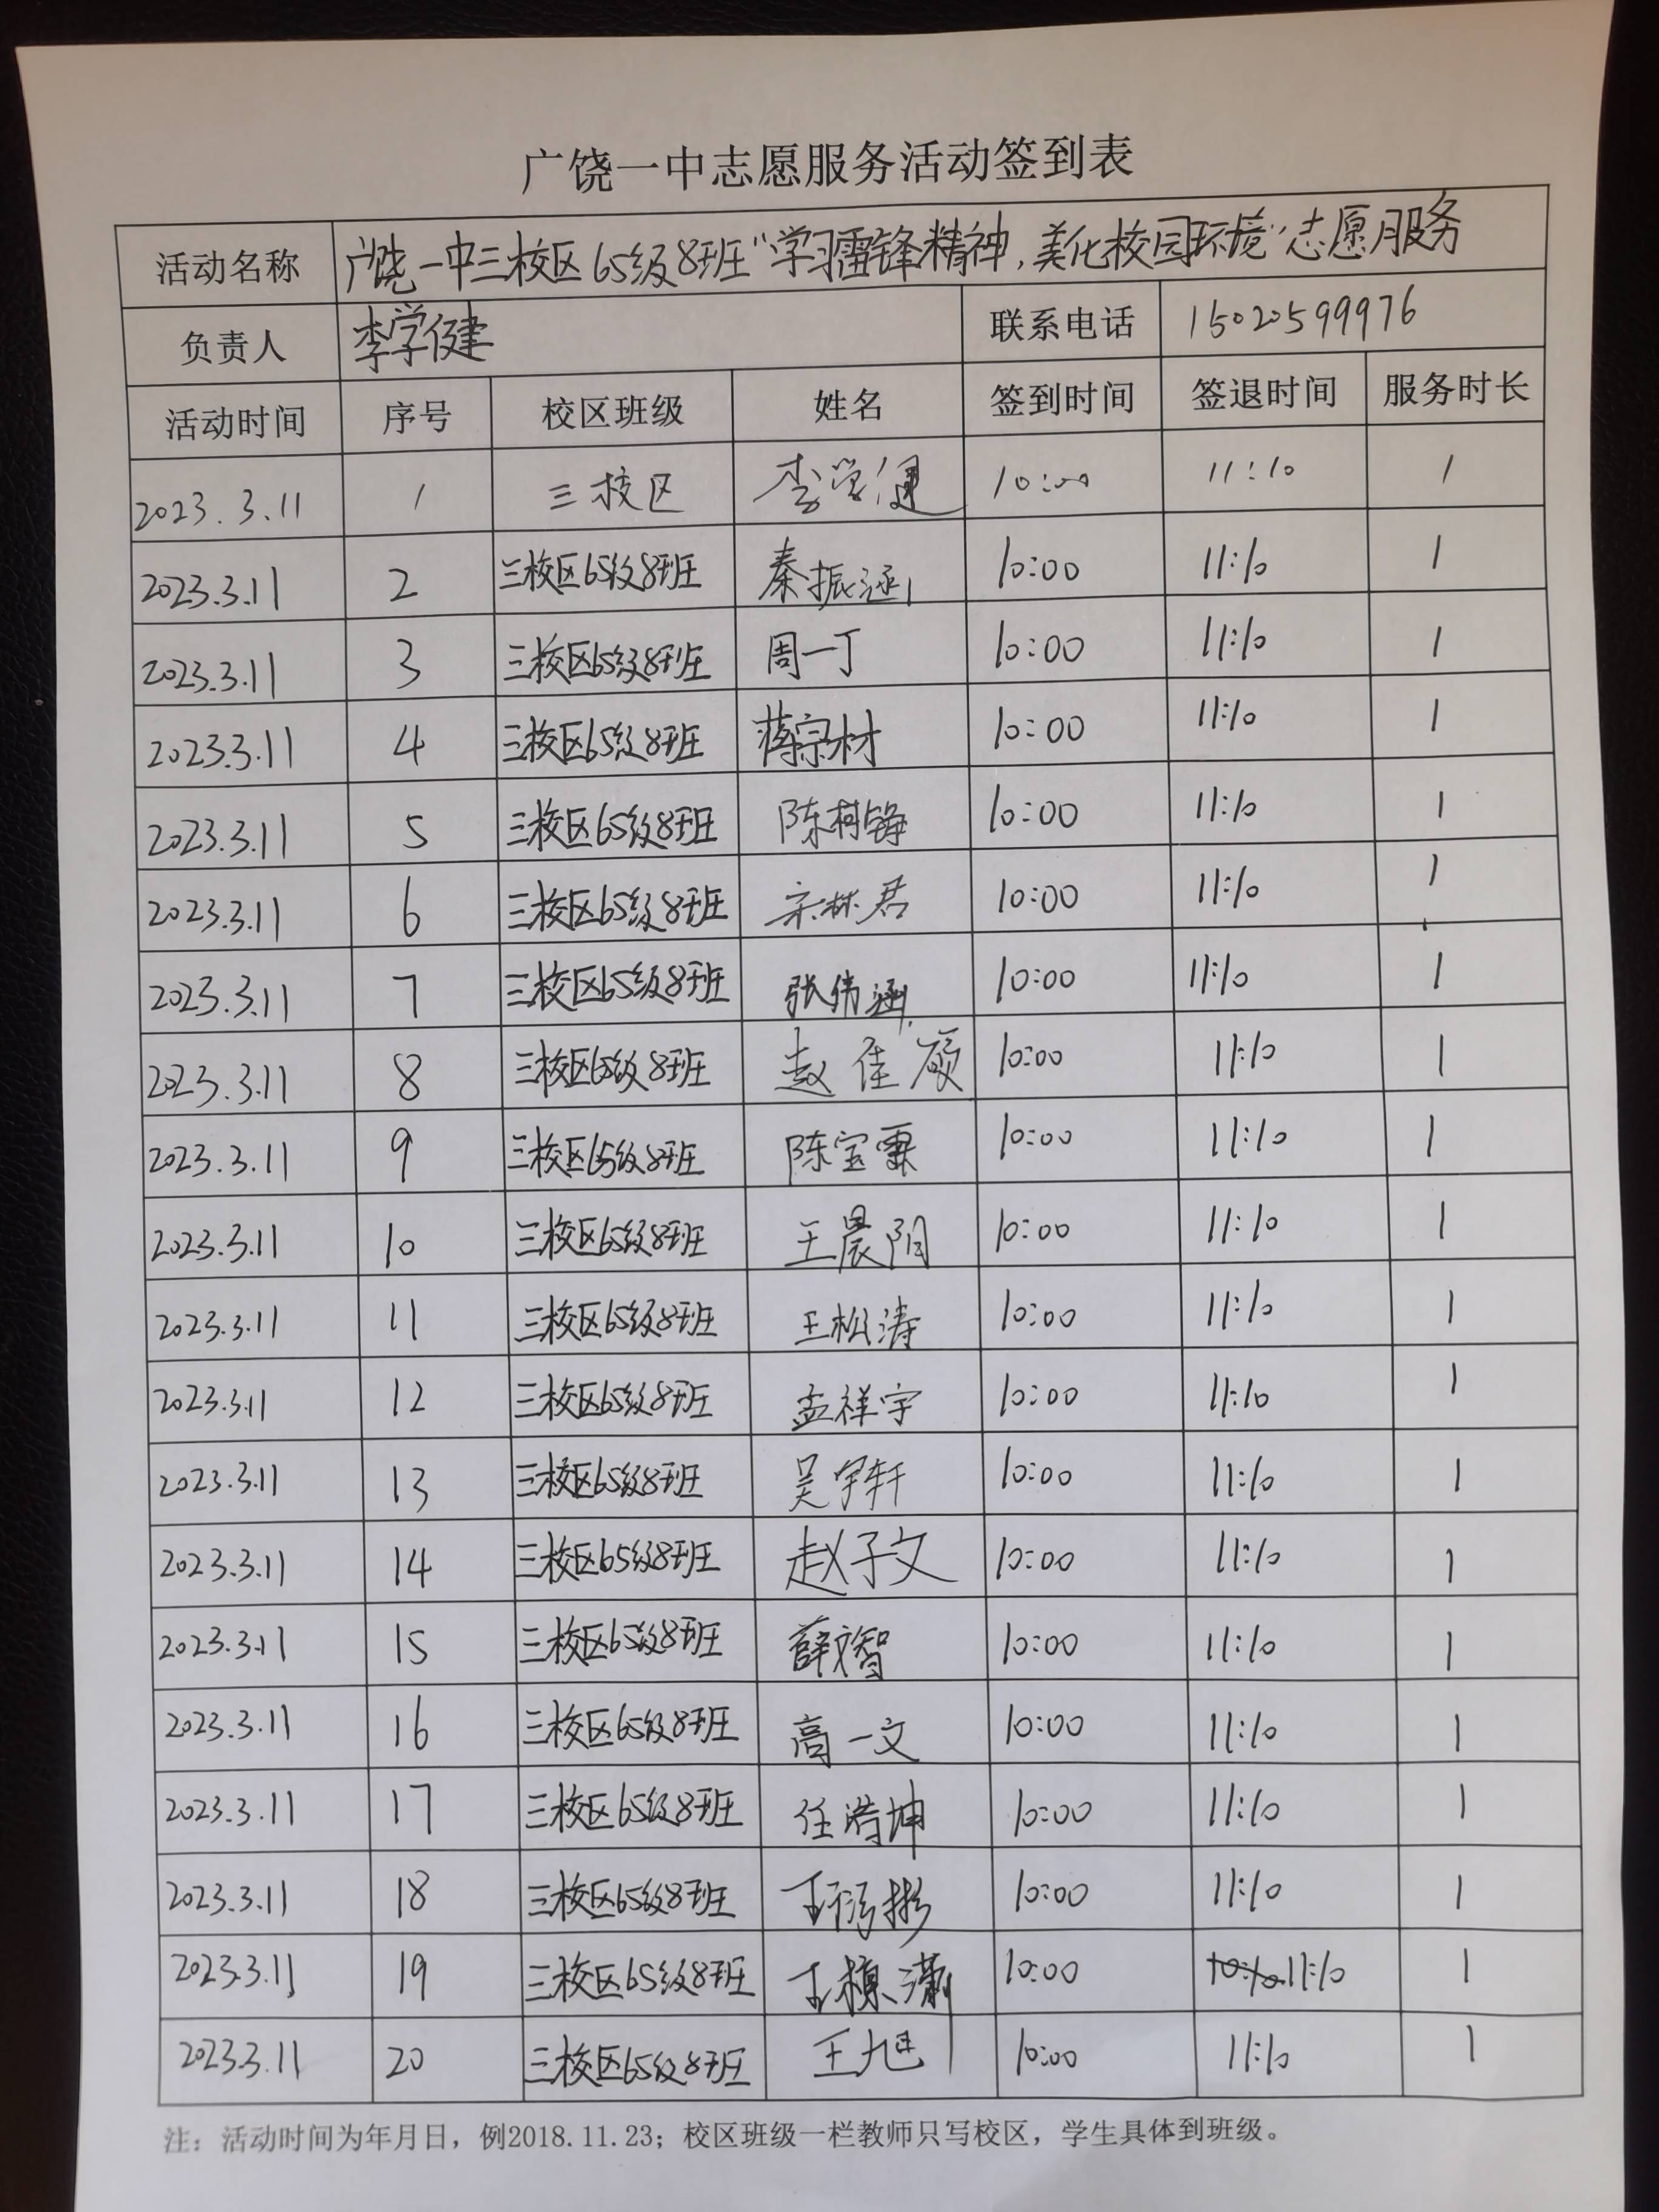 广饶一中志愿服务活动签到表
活动名称 广饶一中三校区65级8班"学习雷锋精神,美化校园环境"志愿服务
负责人 李学健 联系电话 15020599976
活动时间 序号 校区班级 姓名 签到时间 签退时间 服务时长
2023.3.11 1 三校区 李学健 10:00 11:10 1
2023.3.11 2 三校区65级8班 秦振涵 10:00 11:10 1
2023.3.11 3 三校区65级8班 周一丁 10:00 11:10 1
2023.3.11 4 三校区65级8班 蒋宗材 10:00 11:10 1
2023.3.11 5 三校区65级8班 陈树锋 10:00 11:10 1
2023.3.11 6 三校区65级8班 宋林君 10:00 11:10 1
2023.3.11 7 三校区65级8班 张伟涵 10:00 11:10 1
2023.3.11 8 三校区65级8班 赵佳硕 10:00 11:10 1
2023.3.11 9 三校区65级8班 陈宝霖 10:00 11:10 1
2023.3.11 10 三校区65级8班 王晨阳 10:00 11:10 1
2023.3.11 11 三校区65级8班 王松涛 10:00 11:10 1
2023.3.11 12 三校区65级8班 孟祥宇 10:00 11:10 1
2023.3.11 13 三校区65级8班 吴宇轩 10:00 11:10 1
2023.3.11 14 三校区65级8班 赵子文 10:00 11:10 1
2023.3.11 15 三校区65级8班 薛文智 10:00 11:10 1
2023.3.11 16 三校区65级8班 高一文 10:00 11:10 1
2023.3.11 17 三校区65级8班 任浩坤 10:00 11:10 1
2023.3.11 18 三校区65级8班 10:00 11:10 1
2023.3.11 19 三校区65级8班 10:00 11:10 1
2023.3.11 20 三校区65级8班 王旭 10:00 11:10 1
注：活动时间为年月日，例2018.11.23；校区班级一栏教师只写校区，学生具体到班级。